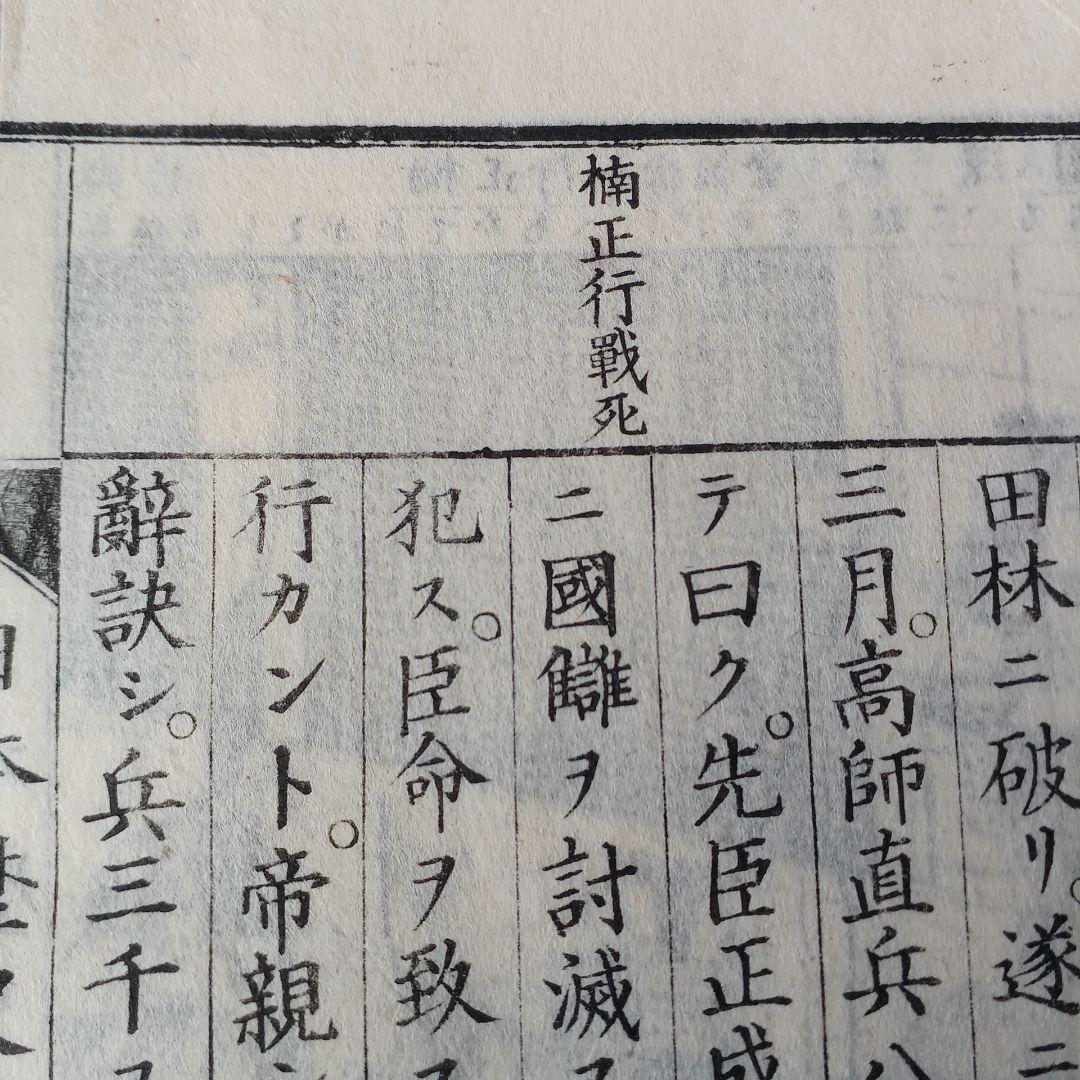 楠正行戰死
田林ニ破リ。遂ニ
三月。高師直兵八
テ曰ク。先臣正成
ニ國讎ヲ討滅ス
犯ス。臣命ヲ致ス
行カント。帝親
辭訣シ。兵三千